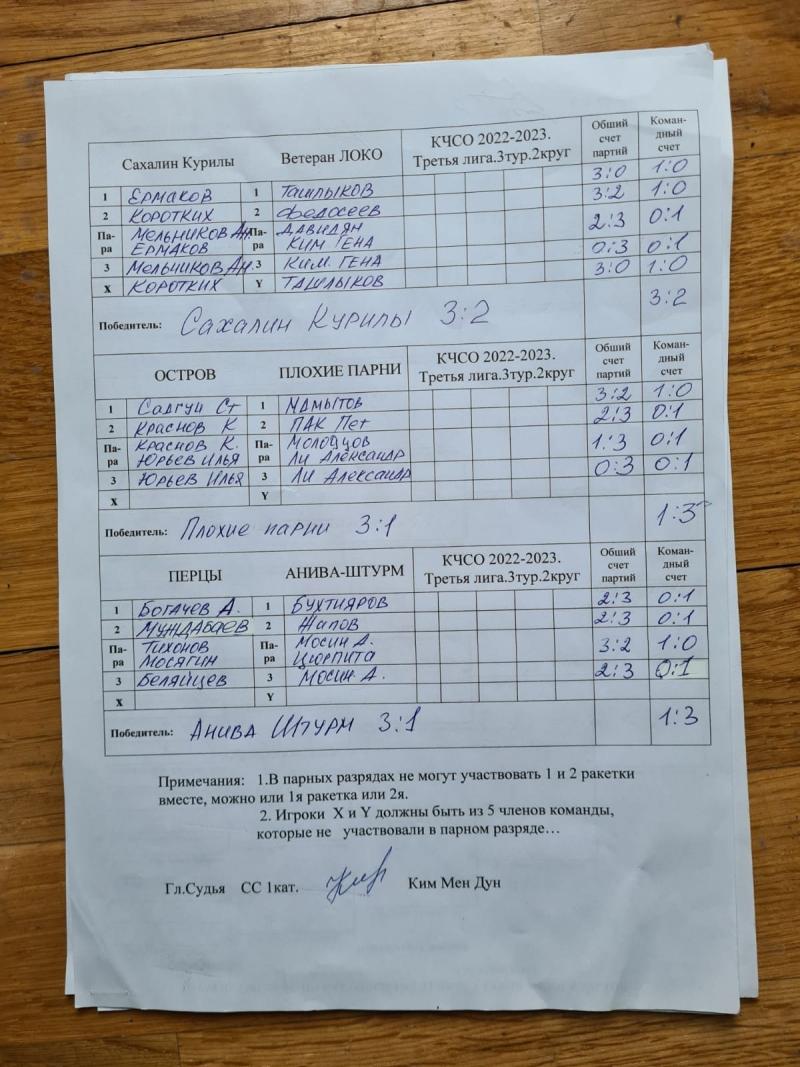 Сахалин Курилы Ветеран ЛОКО КЧСО 2022-2023. Третья лига.3тур.2круг Обший счет партий Коман-дный счет
1 Ермаков 1 Ташлыков 3:0 1:0
2 Коротких 2 Федосеев 3:2 1:0
Па-ра Мельников Ан. Па-ра Давидян 2:3 0:1
Ермаков Ким Гена
3 Мельников Ан. 3 Ким Гена 0:3 0:1
X Коротких Y Ташлыков 3:0 1:0
Победитель: Сахалин Курилы 3:2 3:2
ОСТРОВ ПЛОХИЕ ПАРНИ КЧСО 2022-2023. Третья лига.3тур.2круг Обший счет партий Коман-дный счет
1 Садгун Ст 1 Мамытов 3:2 1:0
2 Краснов К 2 ПАК Пет 2:3 0:1
Па-ра Краснов К. Па-ра Молодцов 1:3 0:1
Юрьев Илья Ли Александр
3 Юрьев Илья 3 Ли Александр 0:3 0:1
X Y
Победитель: Плохие парни 3:1 1:3
ПЕРЦЫ АНИВА-ШТУРМ КЧСО 2022-2023. Третья лига.3тур.2круг Обший счет партий Коман-дный счет
1 Богачев А. 1 Бухтияров 2:3 0:1
2 Муждабаев 2 Жапов 2:3 0:1
Па-ра Тихонов Па-ра Мосин А. 3:2 1:0
Мосягин Цюрпита
3 Беляйцев 3 Мосин А. 2:3 0:1
X Y
Победитель: Анива Штурм 3:1 1:3
Примечания: 1.В парных разрядах не могут участвовать 1 и 2 ракетки
вместе, можно или 1я ракетка или 2я.
2. Игроки X и Y должны быть из 5 членов команды,
которые не участвовали в парном разряде…
Гл.Судья СС 1кат. Ким Мен Дун